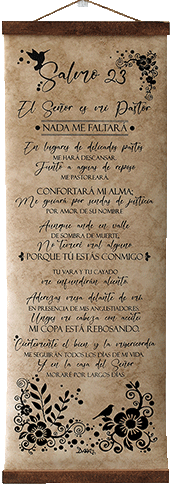 Salmo 23
El Señor es mi Pastor
NADA ME FALTARÁ
En lugares de delicados pastos
ME HARÁ DESCANSAR,
Junto a aguas de reposo
ME PASTOREARÁ.
CONFORTARÁ MI ALMA;
Me guiará por sendas de justicia
POR AMOR DE SU NOMBRE
Aunque ande en valle
DE SOMBRA DE MUERTE,
No temeré mal alguno
PORQUE TÚ ESTÁS CONMIGO
TU VARA Y TU CAYADO
me infundirán aliento.
Aderezas mesa delante de mí
EN PRESENCIA DE MIS ANGUSTIADORES.
Unges mi cabeza con aceite
MI COPA ESTÁ REBOSANDO.
Ciertamente el bien y la misericordia
ME SEGUIRÁN TODOS LOS DÍAS DE MI VIDA,
Y en la casa del Señor
MORARÉ POR LARGOS DÍAS.